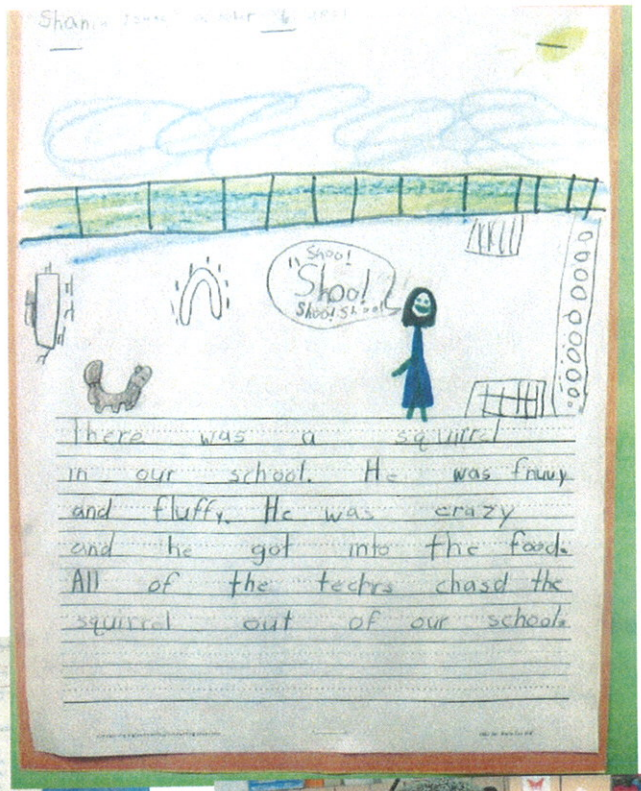 Shan
6
Shoo!
"Shoo!
Shoo! Shoo!
There was a squirrel
in our school. He was fnuuy
and fluffy. He was crazy
and he got into the food.
All of the techrs chasd the
squirrel out of our school.